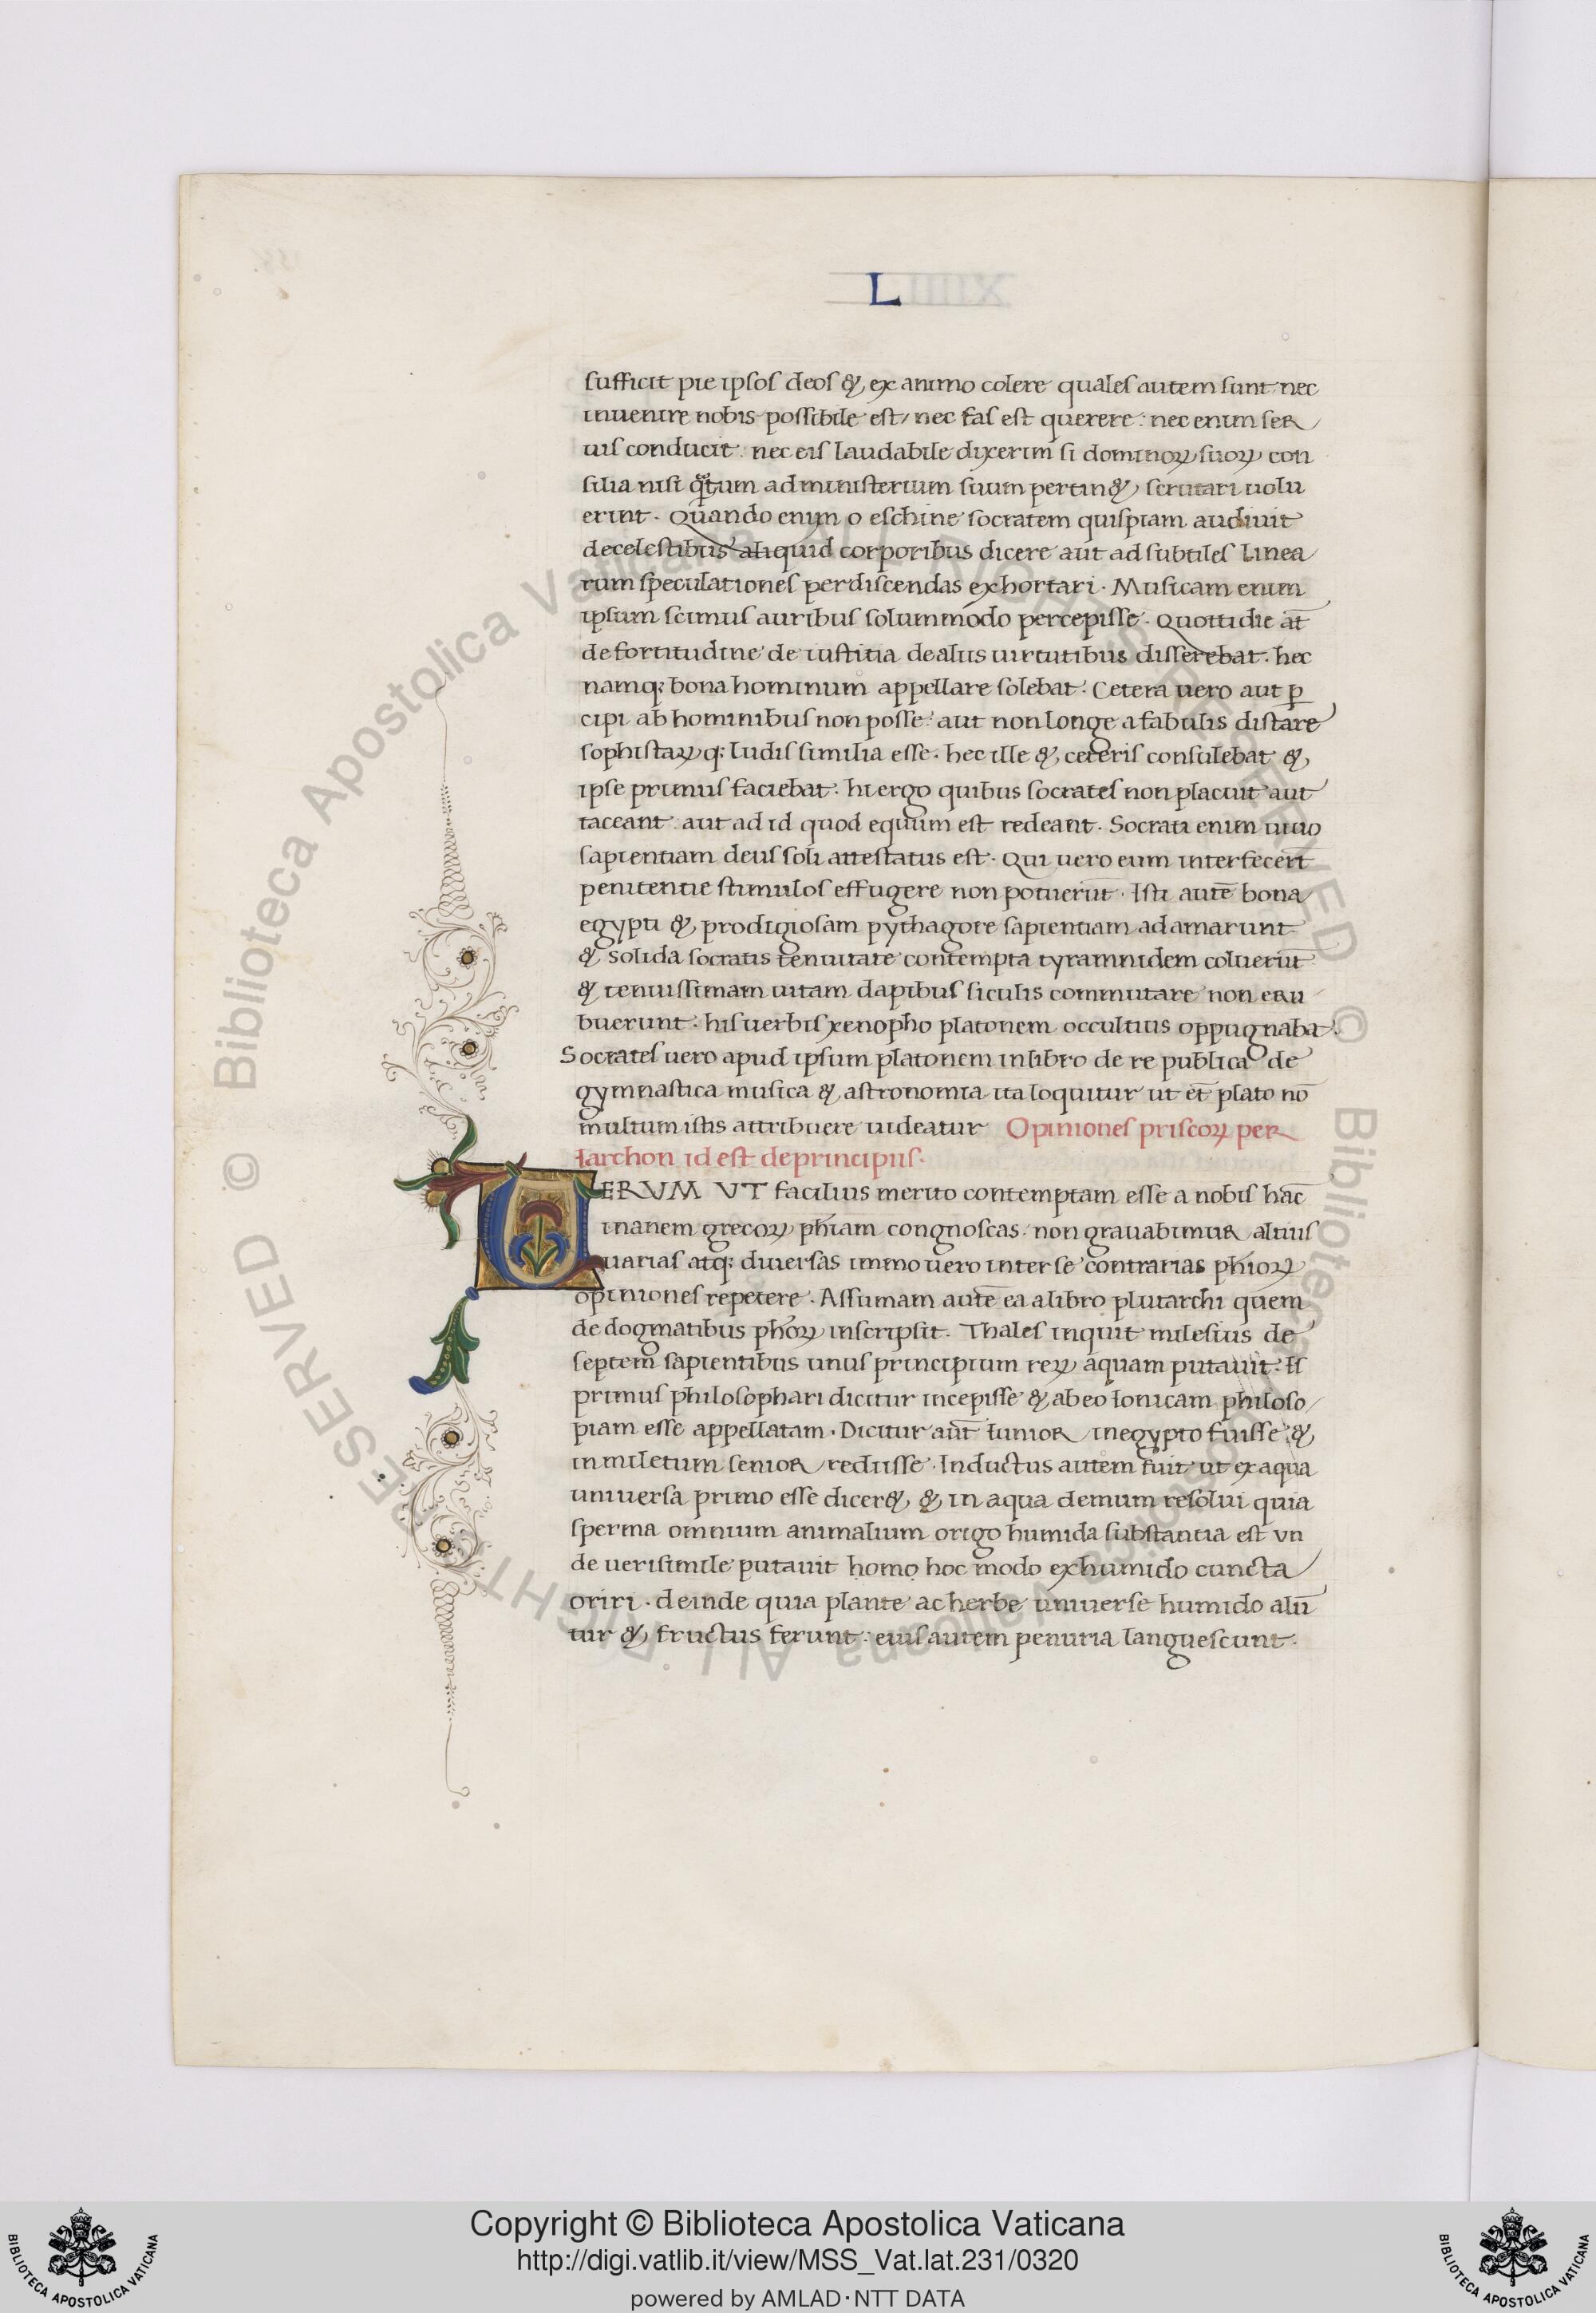 L
sufficit pie ipsos deos & ex animo colere quales autem sunt nec
inuenire nobis possibile est, nec fas est querere: nec enim ser
uis conducit: nec eis laudabile dixerim si dominoꝝ suoꝝ con
silia nisi qᷓtum ad ministerium suum pertin& scrutari uolu
erint. Quando enim o eschine socratem quispiam audiuit
de celestibus aliquid corporibus dicere aut ad subtiles linea
rum speculationes perdiscendas exhortari. Musicam enim
ipsum scimus auribus solummodo percepisse. Quottidie at̄
de fortitudine de iustitia de aliis uirtutibus disserebat. hec
namq; bona hominum appellare solebat. Cetera uero aut ꝑ
cipi ab hominibus non posse: aut non longe a fabulis distare
sophistaꝝq; ludis similia esse. hec ille & ceteris consulebat &
ipse primus faciebat. hi ergo quibus socrates non placuit aut
taceant: aut ad id quod equum est redeant. Socrati enim uiuo
sapientiam deus soli attestatus est. Qui uero eum interfecert̄
penitentie stimulos effugere non potuerūt. Isti autē bona
egypti & prodigiosam pythagore sapientiam adamarunt
& solida socratis tenuitate contempta tyramnidem coluerūt
& tenuissimam uitam dapibus siculis commutare non eru
buerunt. his uerbis xenopho platonem occultius oppugnabat.
Socrates uero apud ipsum platonem in libro de re publica de
gymnastica musica & astronomia ita loquitur ut et̄ plato nō
multum istis attribuere uideatur Opiniones priscoꝝ per
iarchon id est de principiis.
VERVM VT facilius merito contemptam esse a nobis hāc
inanem grecoꝝ phiam congnoscas. non grauabimur altius
uarias atq; diuersas immo uero inter se contrarias phioꝝ
opiniones repetere. Assumam autē ea a libro plutarchi quem
de dogmatibus phoꝝ inscripsit. Thales inquit milesius de
septem sapientibus unus principium reꝝ aquam putauit. Is
primus philosophari dicitur incepisse & ab eo ionicam philoso
piam esse appellatam. Dicitur aut̄ iunior in egypto fuisse &
in miletum senior rediisse. Inductus autem fuit ut ex aqua
uniuersa primo esse dicer& & in aqua demum resolui quia
sperma omnium animalium origo humida substantia est vn
de uerisimile putauit homo hoc modo ex humido cuncta
oriri. deinde quia plante ac herbe uniuerse humido alū
tur & fructus ferunt: eius autem penuria languescunt.
Copyright © Biblioteca Apostolica Vaticana
http://digi.vatlib.it/view/MSS_Vat.lat.231/0320
powered by AMLAD·NTT DATA